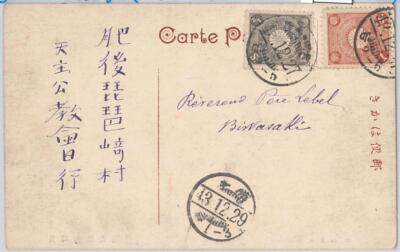 Carte Po
肥後琵琶崎村
天主公教會目行
Révérend Père Lebel
Biwasaki
きかは便郵
43.12.29